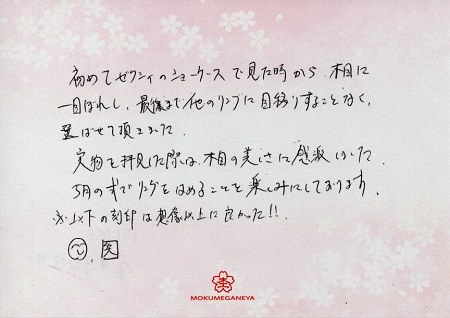 初めてゼクシィのショーケースで見た時から 木目に
一目ぼれし、最後まで他のリングに目移りすることなく、
選ばせて頂きました。
実物を拝見した際は、木目の美しさに感激しました。
5月の すでリングをはめることを楽しみにしております。
の刻印は想像以上に良かった!!
MOKUMEGANEYA